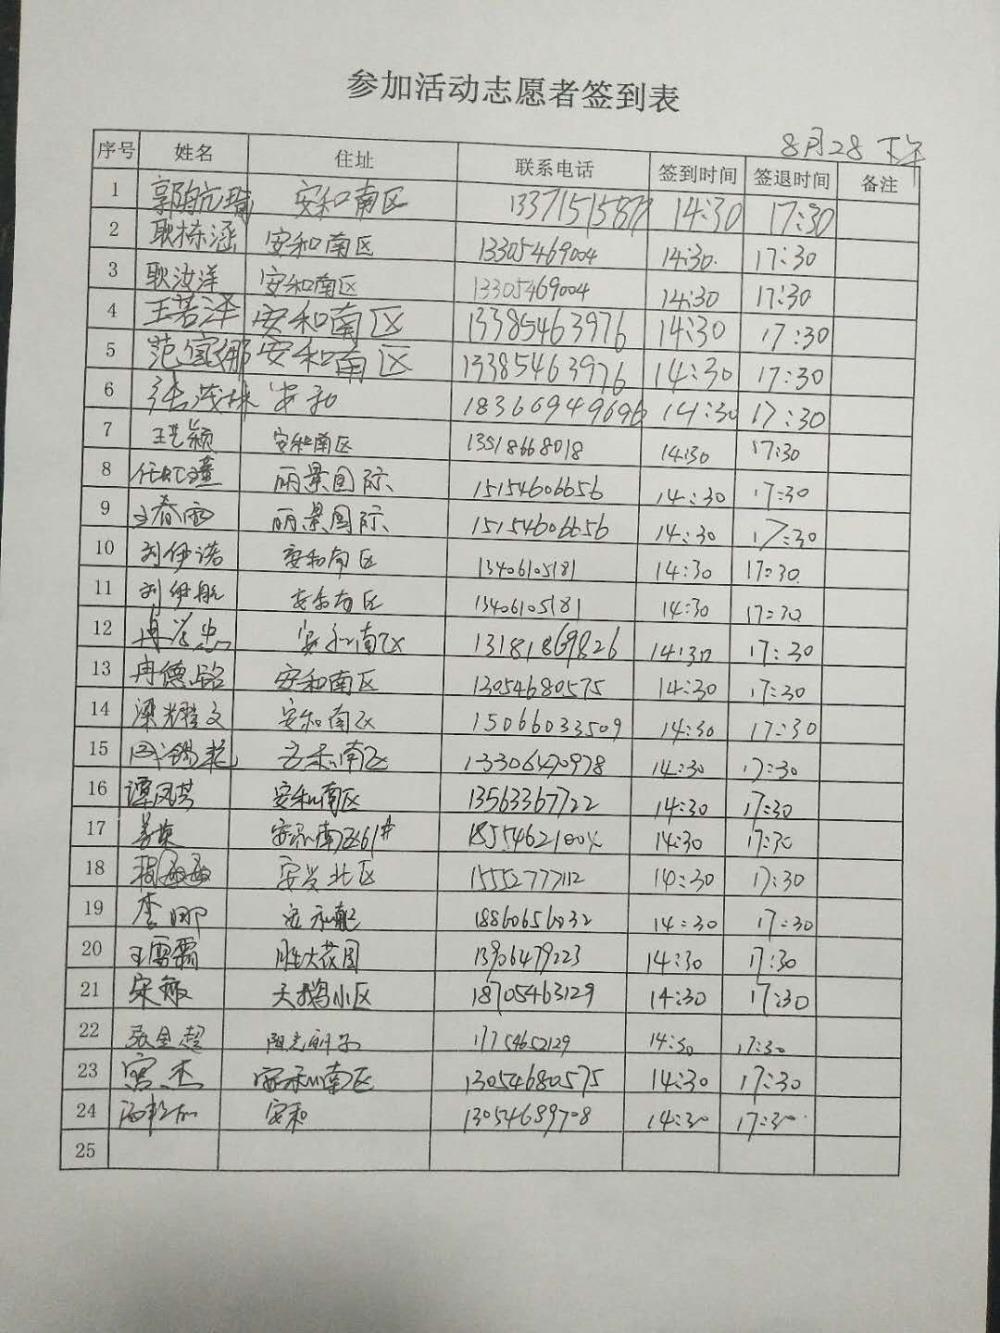 参加活动志愿者签到表
8月28 下午
序号 姓名 住址 联系电话 签到时间 签退时间 备注
1 安和南区 13371515877 14:30 17:30
2 耿栋涵 安和南区 13305469004 14:30. 17:30
3 耿汝洋 安和南区 13305469004 14:30 17:30
4 王若泽 安和南区 13385463976 14:30 17:30
5 安和南区 13385463976 14:30 17:30
6 张茂林 安和 18366949696 14:30 17:30
7 王艺颖 安和南区 13518668018 14:30 17:30
8 丽景国际 15154606656 14:30 17:30
9 王春雨 丽景国际 15154606656 14:30 17:30
10 刘伊诺 安和南区 13406105181 14:30 17:30
11 刘伊航 安和南区 13406105181 14:30 17:30
12 安和南区 13181869826 14:30 17:30
13 冉德铭 安和南区 13054680575 14:30 17:30
14 梁耀文 安和南区 15066033509 14:30 17:30
15 安和南区 13306470978 14:30 17:30
16 谭凤芹 安和南区 13563367722 14:30 17:30
17 安和南区61# 14:30 17:30
18 安兴北区 15552777112 14:30 17:30
19 李娜 18860656032 14:30 17:30
20 王雪霜 胜大花园 13906479223 14:30 17:30
21 天鹅小区 18705463129 14:30 17:30
22 张全超 14:30 17:30
23 宫杰 安和南区 13054680575 14:30 17:30
24 安和 13054689708 14:30 17:30
25